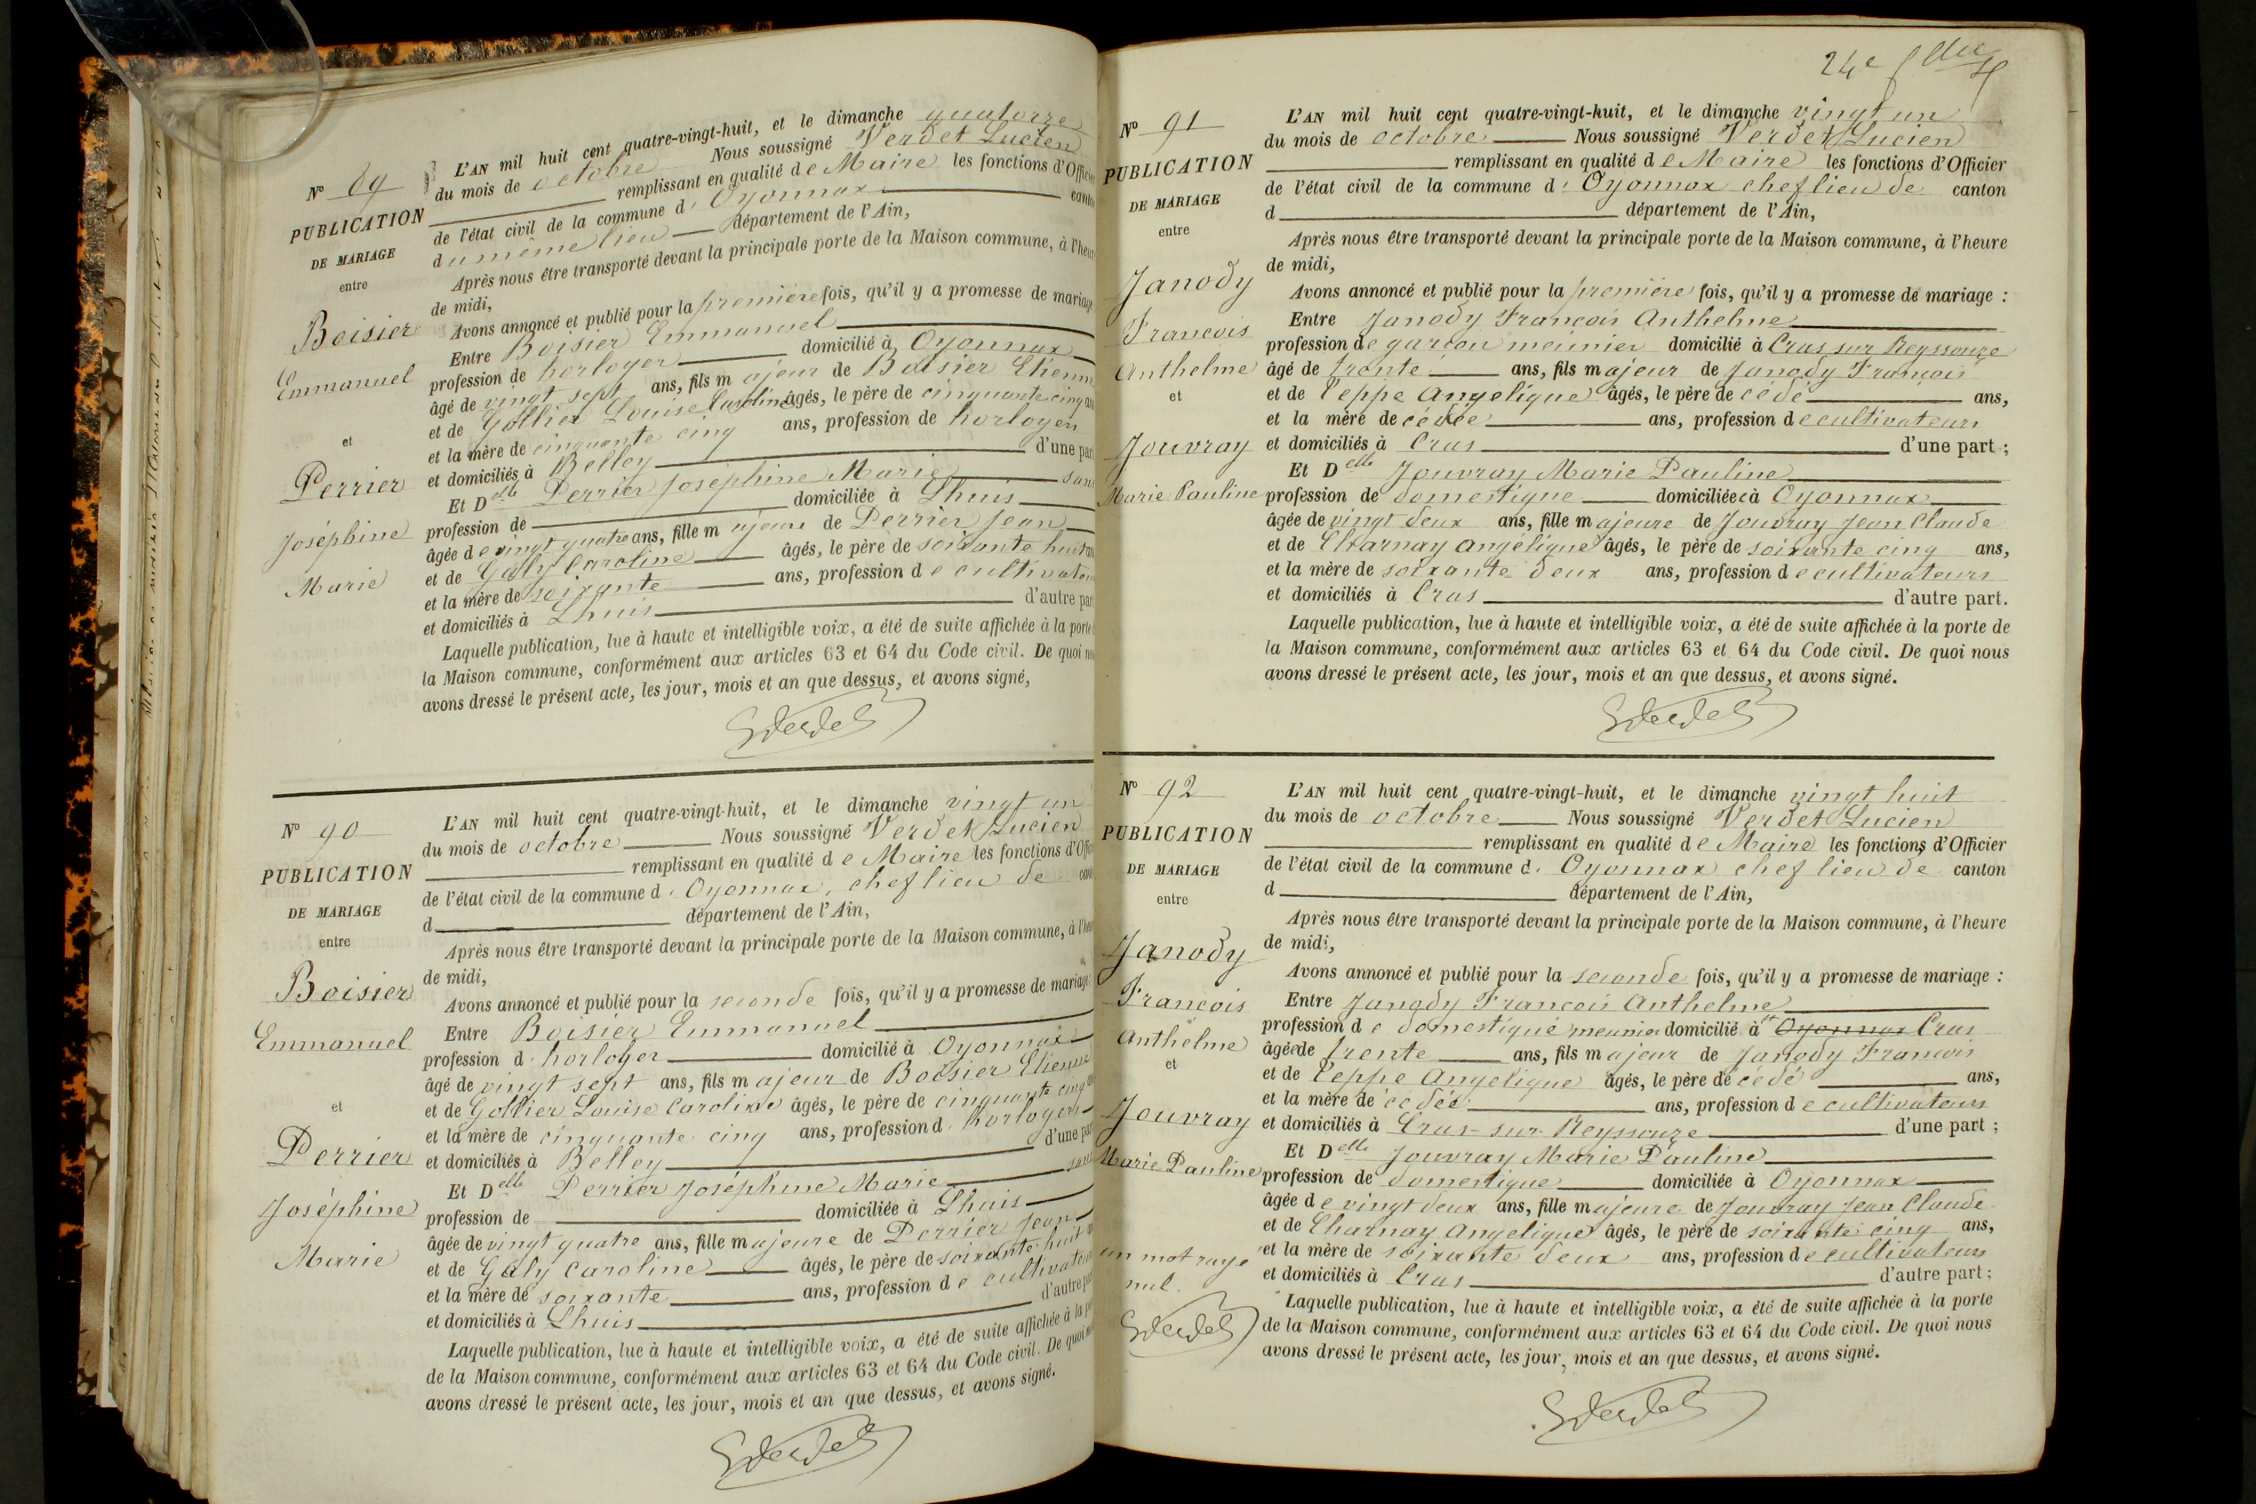 Nº 89
PUBLICATION
DE MARIAGE
entre
Boisier
Emmanuel
et
Perrier
Joséphine
Marie
L'AN mil huit cent quatre-vingt-huit, et le dimanche quatorze
du mois de octobre Nous soussigné Verdet Lucien
remplissant en qualité de Maire les fonctions d'Officier
de l'état civil de la commune d' Oyonnax canton
du même lieu département de l'Ain,
Après nous être transporté devant la principale porte de la Maison commune, à l'heure
de midi,
Avons annoncé et publié pour la première fois, qu'il y a promesse de mariage
Entre Boisier Emmanuel
profession de horloger domicilié à Oyonnax
âgé de vingt sept ans, fils majeur de Boisier Etienne
et de Gollier Louise Caroline âgés, le père de cinquante cinq ans
et la mère de cinquante cinq ans, profession de horlogers
et domiciliés à Belley d'une part
Et Delle Perrier Joséphine Marie sans
profession de domiciliée à Lhuis
âgée de vingt quatre ans, fille majeure de Perrier Jean
et de Galy Caroline âgés, le père de soixante huit ans
et la mère de soixante ans, profession de cultivateurs
et domiciliés à Lhuis d'autre part
Laquelle publication, lue à haute et intelligible voix, a été de suite affichée à la porte
la Maison commune, conformément aux articles 63 et 64 du Code civil. De quoi nous
avons dressé le présent acte, les jour, mois et an que dessus, et avons signé,
Verdet
Nº 90
PUBLICATION
DE MARIAGE
entre
Boisier
Emmanuel
et
Perrier
Joséphine
Marie
L'AN mil huit cent quatre-vingt-huit, et le dimanche vingt un
du mois de octobre Nous soussigné Verdet Lucien
remplissant en qualité de Maire les fonctions d'Officier
de l'état civil de la commune d' Oyonnax, chef lieu de canton
d département de l'Ain,
Après nous être transporté devant la principale porte de la Maison commune, à l'heure
de midi,
Avons annoncé et publié pour la seconde fois, qu'il y a promesse de mariage
Entre Boisier Emmanuel
profession d' horloger domicilié à Oyonnax
âgé de vingt sept ans, fils majeur de Boisier Etienne
et de Gollier Louise Caroline âgés, le père de cinquante cinq ans
et la mère de cinquante cinq ans, profession d' horlogers
et domiciliés à Belley d'une part
Et Delle Perrier Joséphine Marie sans
profession de domiciliée à Lhuis
âgée de vingt quatre ans, fille majeure de Perrier Jean
et de Galy Caroline âgés, le père de soixante huit ans
et la mère de soixante ans, profession de cultivateurs
et domiciliés à Lhuis d'autre part
Laquelle publication, lue à haute et intelligible voix, a été de suite affichée à la porte
de la Maison commune, conformément aux articles 63 et 64 du Code civil. De quoi nous
avons dressé le présent acte, les jour, mois et an que dessus, et avons signé.
Verdet
24e
Nº 91
PUBLICATION
DE MARIAGE
entre
Janody
Francois
Anthelme
et
Jouvray
Marie Pauline
L'AN mil huit cent quatre-vingt-huit, et le dimanche vingt un
du mois de octobre Nous soussigné Verdet Lucien
remplissant en qualité de Maire les fonctions d'Officier
de l'état civil de la commune d' Oyonnax chef lieu de canton
d département de l'Ain,
Après nous être transporté devant la principale porte de la Maison commune, à l'heure
de midi,
Avons annoncé et publié pour la première fois, qu'il y a promesse de mariage :
Entre Janody François Anthelme
profession de garcon meunier domicilié à Cras sur Reyssouze
âgé de trente ans, fils majeur de Janody François
et de Peppe Angelique âgés, le père de cédé ans,
et la mère de cédée ans, profession de cultivateurs
et domiciliés à Cras d'une part ;
Et Delle Jouvray Marie Pauline
profession de domestique domiciliée à Oyonnax
âgée de vingt deux ans, fille majeure de Jouvray Jean Claude
et de Charnay Angélique âgés, le père de soixante cinq ans,
et la mère de soixante deux ans, profession de cultivateurs
et domiciliés à Cras d'autre part.
Laquelle publication, lue à haute et intelligible voix, a été de suite affichée à la porte de
la Maison commune, conformément aux articles 63 et 64 du Code civil. De quoi nous
avons dressé le présent acte, les jour, mois et an que dessus, et avons signé.
Verdet
Nº 92
PUBLICATION
DE MARIAGE
entre
Janody
Francois
Anthelme
et
Jouvray
Marie Pauline
un mot rayé
nul.
Verdet
L'AN mil huit cent quatre-vingt-huit, et le dimanche vingt huit
du mois de octobre Nous soussigné Verdet Lucien
remplissant en qualité de Maire les fonctions d'Officier
de l'état civil de la commune d' Oyonnax chef lieu de canton
d département de l'Ain,
Après nous être transporté devant la principale porte de la Maison commune, à l'heure
de midi,
Avons annoncé et publié pour la seconde fois, qu'il y a promesse de mariage :
Entre Janody Francois Anthelme
profession de domestique meunier domicilié à Oyonnax Cras
âgé de trente ans, fils majeur de Janody Francois
et de Peppe Angelique âgés, le père de cédé ans,
et la mère de cédée ans, profession de cultivateurs
et domiciliés à Cras-sur-Reyssouze d'une part ;
Et Delle Jouvray Marie Pauline
profession de domestique domiciliée à Oyonnax
âgée de vingt deux ans, fille majeure de Jouvray Jean Claude
et de Charnay Angelique âgés, le père de soixante cinq ans,
et la mère de soixante deux ans, profession de cultivateurs
et domiciliés à Cras d'autre part ;
Laquelle publication, lue à haute et intelligible voix, a été de suite affichée à la porte
de la Maison commune, conformément aux articles 63 et 64 du Code civil. De quoi nous
avons dressé le présent acte, les jour, mois et an que dessus, et avons signé.
Verdet